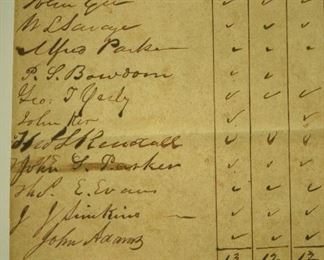 John Gee
W L Savage
Alfred Parker
P. S. Bowdoin
Geo. T Yerly
John Ker
Geo S Kendall
John S. Parker
Tho S. E. Evans
J J Simkins —
John Adams
13 12 12